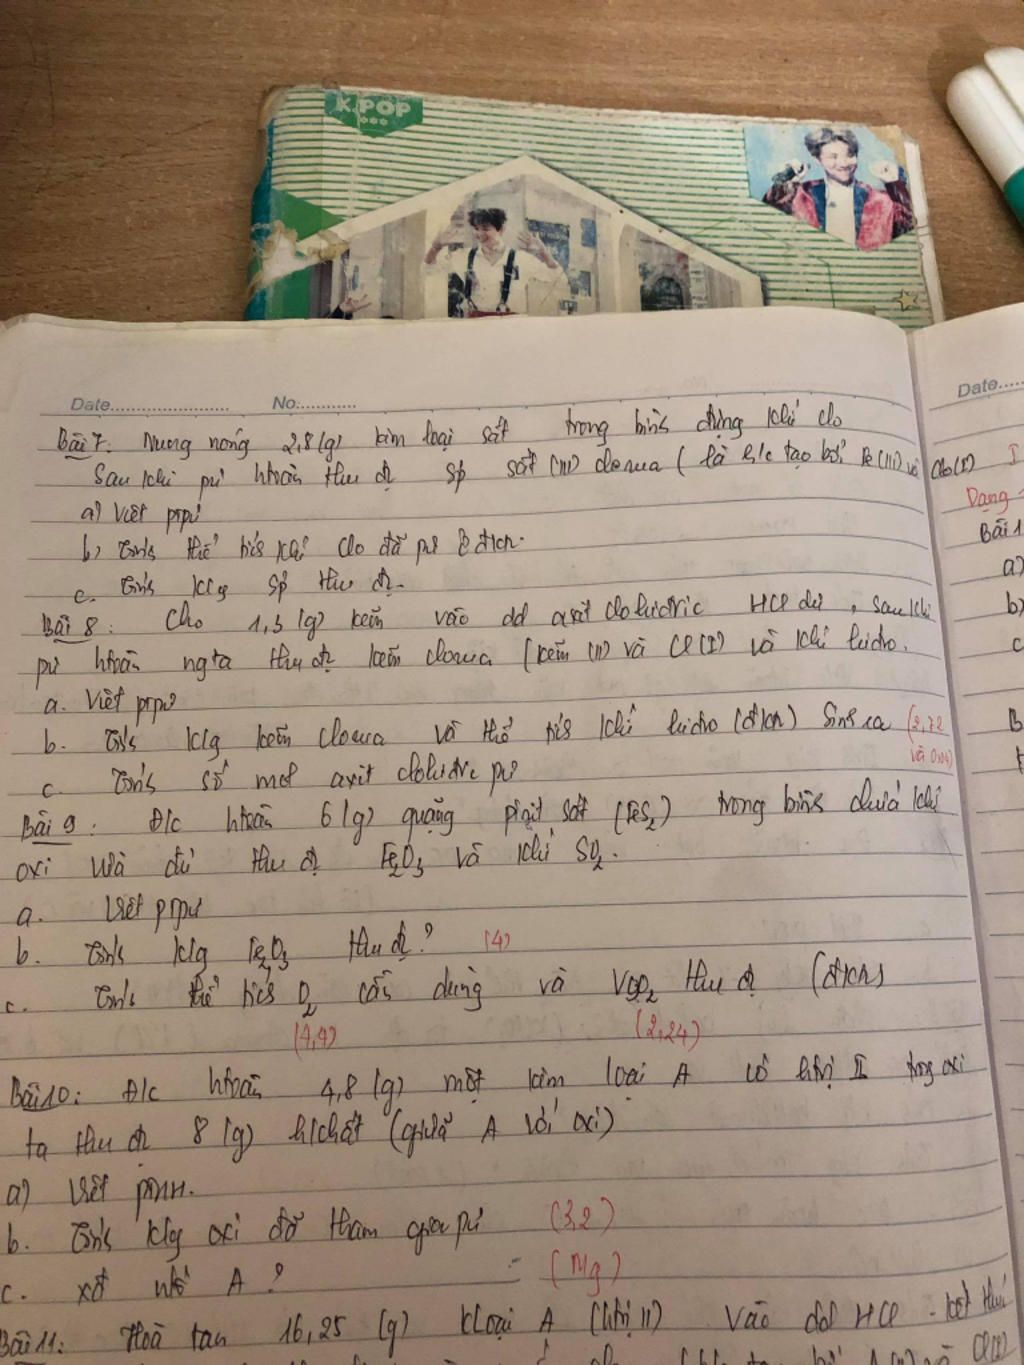 K.POP
Date........................ No:............
Date.....
Bài 7: Nung nóng 2,8 (g) kim loại sắt trong bình đựng khí clo
Sau khi pứ htoàn thu đc sp sắt (III) clorua (là h/c tạo bởi Fe(III) và Clo(I)
a) Viết ptpứ
b) Tính thể tích khí clo đã pứ ở đktc.
c. Tính klg sp thu đc.
Bài 8: Cho 1,3 (g) kẽm vào dd axit clohiđric HCl dư, sau khi
pứ htoàn ngta thu đc kẽm clorua (kẽm (II) và Cl(I) và khí hiđro.
a. Viết ptpứ
b. Tính klg kẽm clorua và thể tích khí hiđro (đktc) sinh ra (2,72
và
c. Tính số mol axit clohiđric pứ
Bài 9: Đ/c htoàn 6 (g) quặng pirit sắt (FeS2) trong bình chứa khí
oxi vừa đủ thu đc Fe2O3 và khí SO2.
a. Viết ptpứ
b. Tính klg Fe2O3 thu đc? (4)
c. Tính thể tích O2 cần dùng và VSO2 thu đc (đktc)
(4,4) (2,24)
Bài 10: Đ/c htoàn 4,8 (g) một kim loại A có htrị II trong oxi
ta thu đc 8 (g) h/chất (giữa A với oxi)
a) Viết pthh.
b. Tính klg oxi đã tham gia pứ (3,2)
c. xđ A? (Mg)
Bài 11: Hoà tan 16,25 (g) kloại A (htrị II) vào dd HCl. kết thúc
I
Dạng
Bài 1
a)
b)
c
B